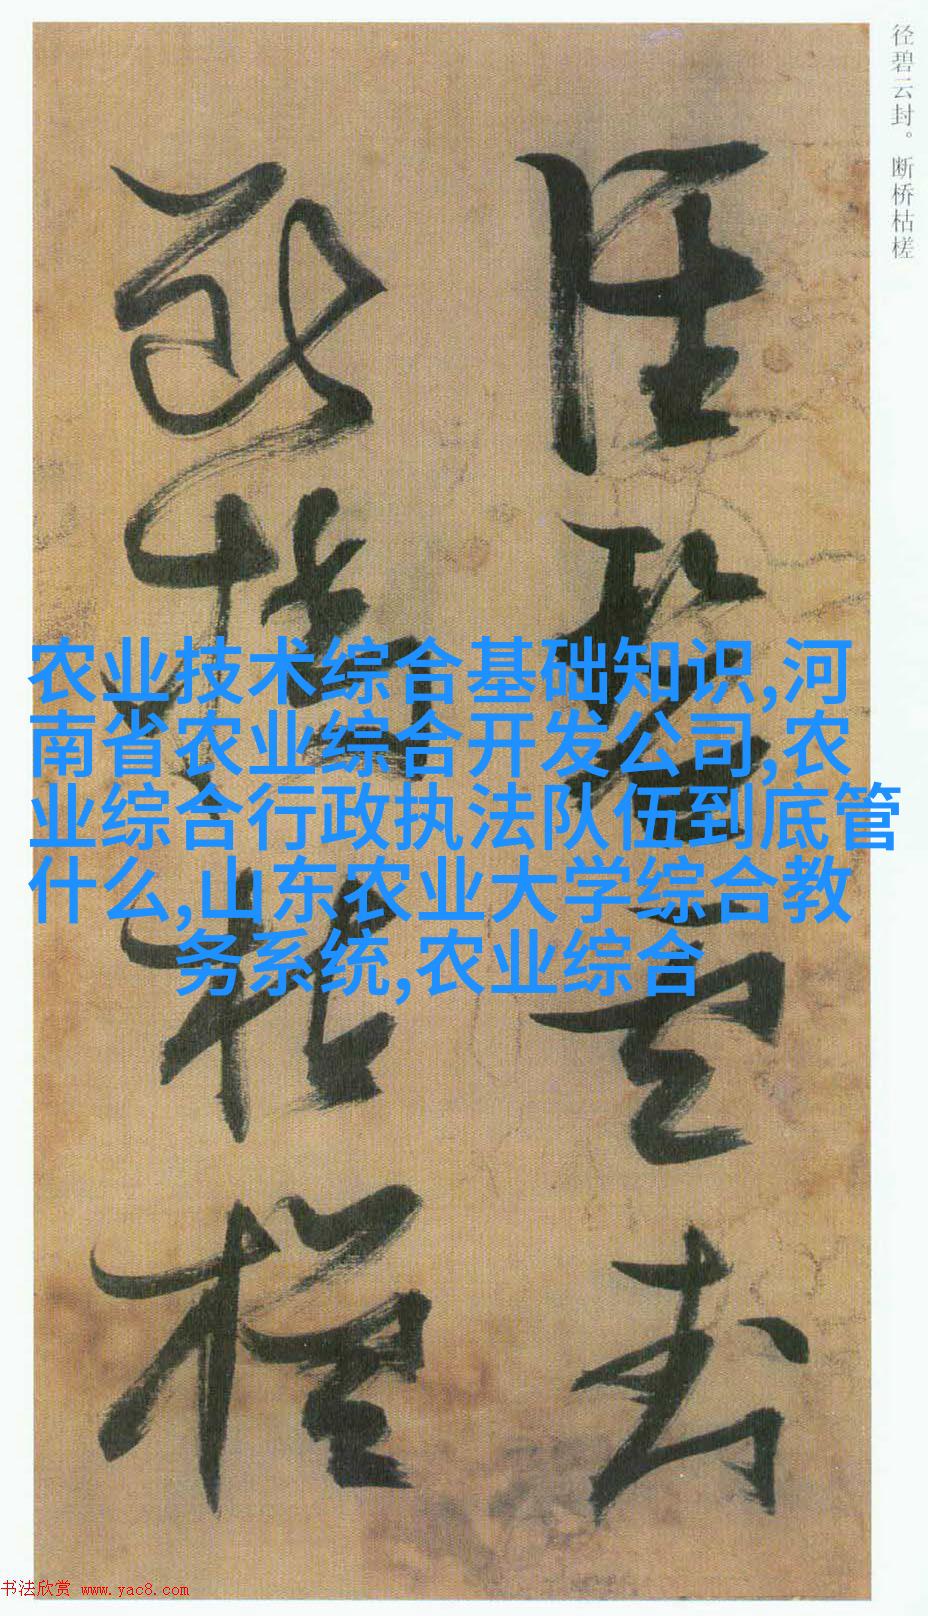 径碧云封。断桥枯槎
径碧云封
断桥枯槎
农业技术综合基础知识,河
南省农业综合开发公司,农
业综合行政执法队伍到底管
什么,山东农业大学综合教
务系统,农业综合
书法欣赏 www.yac8.com